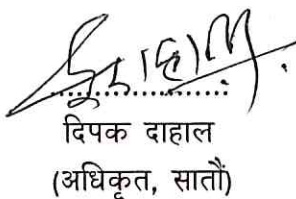 दिपक दाहाल
(अधिकृत, सातौं)